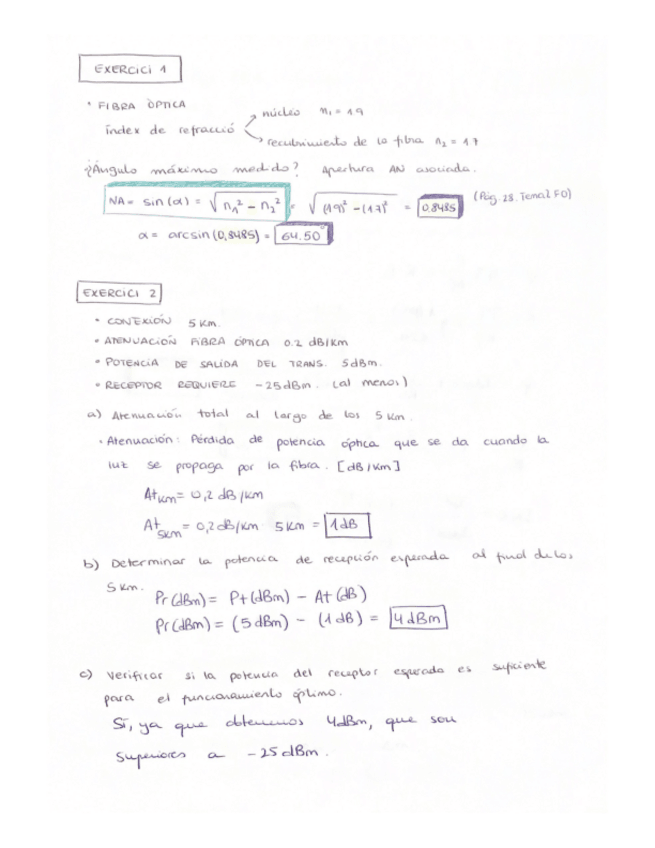 EXERCICI 1
• FIBRA ÒPTICA
índex de refracció
núcleo n₁ = 1'9
recubrimiento de la fibra n₂ = 1'7
¿Ángulo máximo medido? Apertura AN asociada.
NA = sin(α) = √n₁² - n₂² = √(1'9)² - (1'7)² = 0,8485 (Pág. 28. Tema 2 FO)
α = arcsin(0,8485) = 64.50°
EXERCICI 2
• CONEXIÓN 5 Km.
• ATENUACIÓN FIBRA ÓPTICA 0.2 dB/Km
• POTENCIA DE SALIDA DEL TRANS. 5dBm.
• RECEPTOR REQUIERE -25dBm. (al menos)
a) Atenuación total al largo de los 5 Km.
• Atenuación: Pérdida de potencia óptica que se da cuando la
luz se propaga por la fibra. [dB/Km]
At Km = 0,2 dB/Km
At 5Km = 0,2 dB/Km · 5 Km = 1 dB
b) Determinar la potencia de recepción esperada al final de los
5 Km.
Pr(dBm) = Pt(dBm) - At(dB)
Pr(dBm) = (5 dBm) - (1 dB) = 4 dBm
c) Verificar si la potencia del receptor esperada es suficiente
para el funcionamiento óptimo.
Sí, ya que obtenemos 4dBm, que son
superiores a -25 dBm.